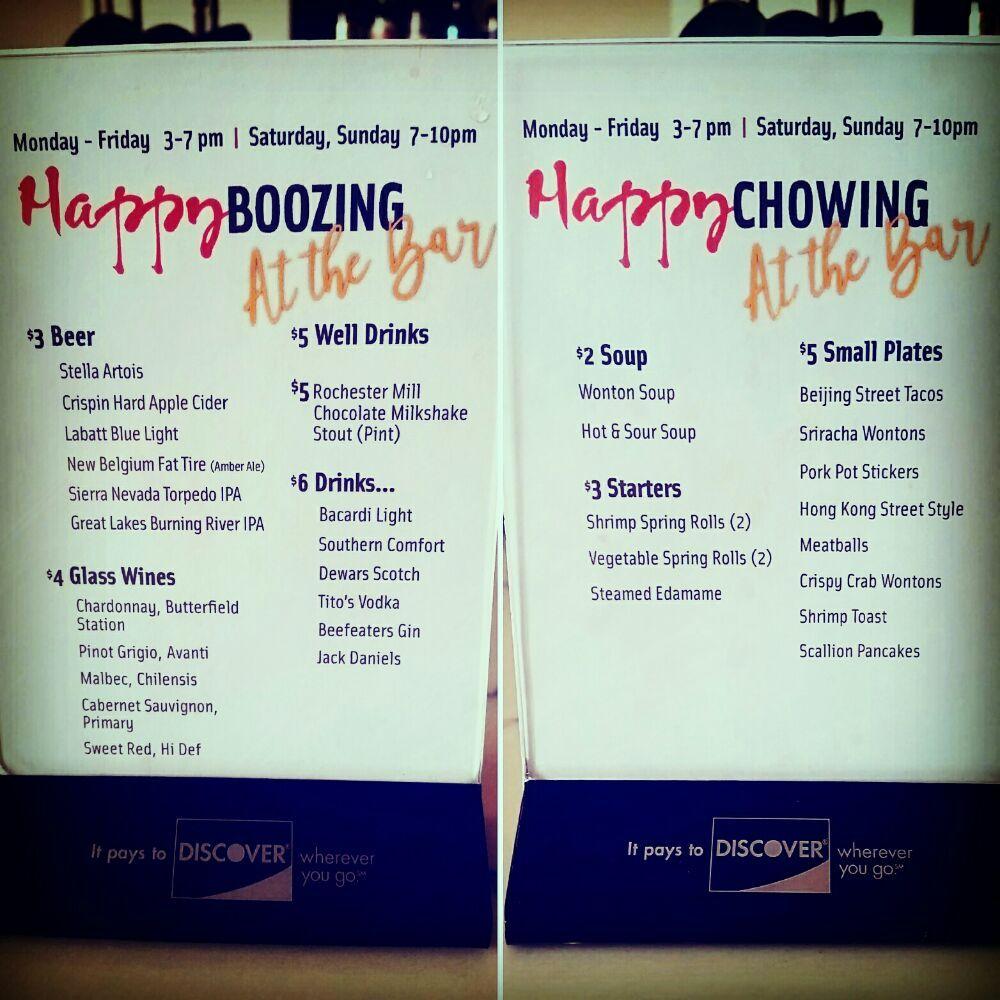 Monday - Friday 3-7 pm | Saturday, Sunday 7-10pm
Happy BOOZING
At the Bar
$3 Beer
Stella Artois
Crispin Hard Apple Cider
Labatt Blue Light
New Belgium Fat Tire (Amber Ale)
Sierra Nevada Torpedo IPA
Great Lakes Burning River IPA
$4 Glass Wines
Chardonnay, Butterfield
Station
Pinot Grigio, Avanti
Malbec, Chilensis
Cabernet Sauvignon,
Primary
Sweet Red, Hi Def
$5 Well Drinks
$5 Rochester Mill
Chocolate Milkshake
Stout (Pint)
$6 Drinks...
Bacardi Light
Southern Comfort
Dewars Scotch
Tito's Vodka
Beefeaters Gin
Jack Daniels
It pays to DISCOVER® wherever
you go.℠
Monday - Friday 3-7 pm | Saturday, Sunday 7-10pm
Happy CHOWING
At the Bar
$2 Soup
Wonton Soup
Hot & Sour Soup
$3 Starters
Shrimp Spring Rolls (2)
Vegetable Spring Rolls (2)
Steamed Edamame
$5 Small Plates
Beijing Street Tacos
Sriracha Wontons
Pork Pot Stickers
Hong Kong Street Style
Meatballs
Crispy Crab Wontons
Shrimp Toast
Scallion Pancakes
It pays to DISCOVER® wherever
you go.℠